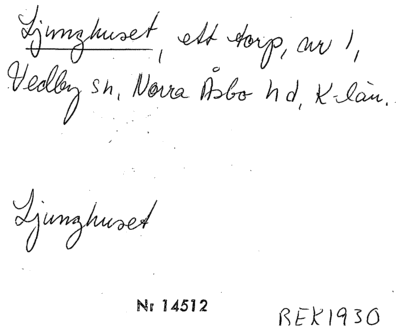 Ljunghuset, ett torp, nr 1,
Vedby sn, Norra Åsbo hd, K-län.
Ljunghuset
Nr 14512
REK1930